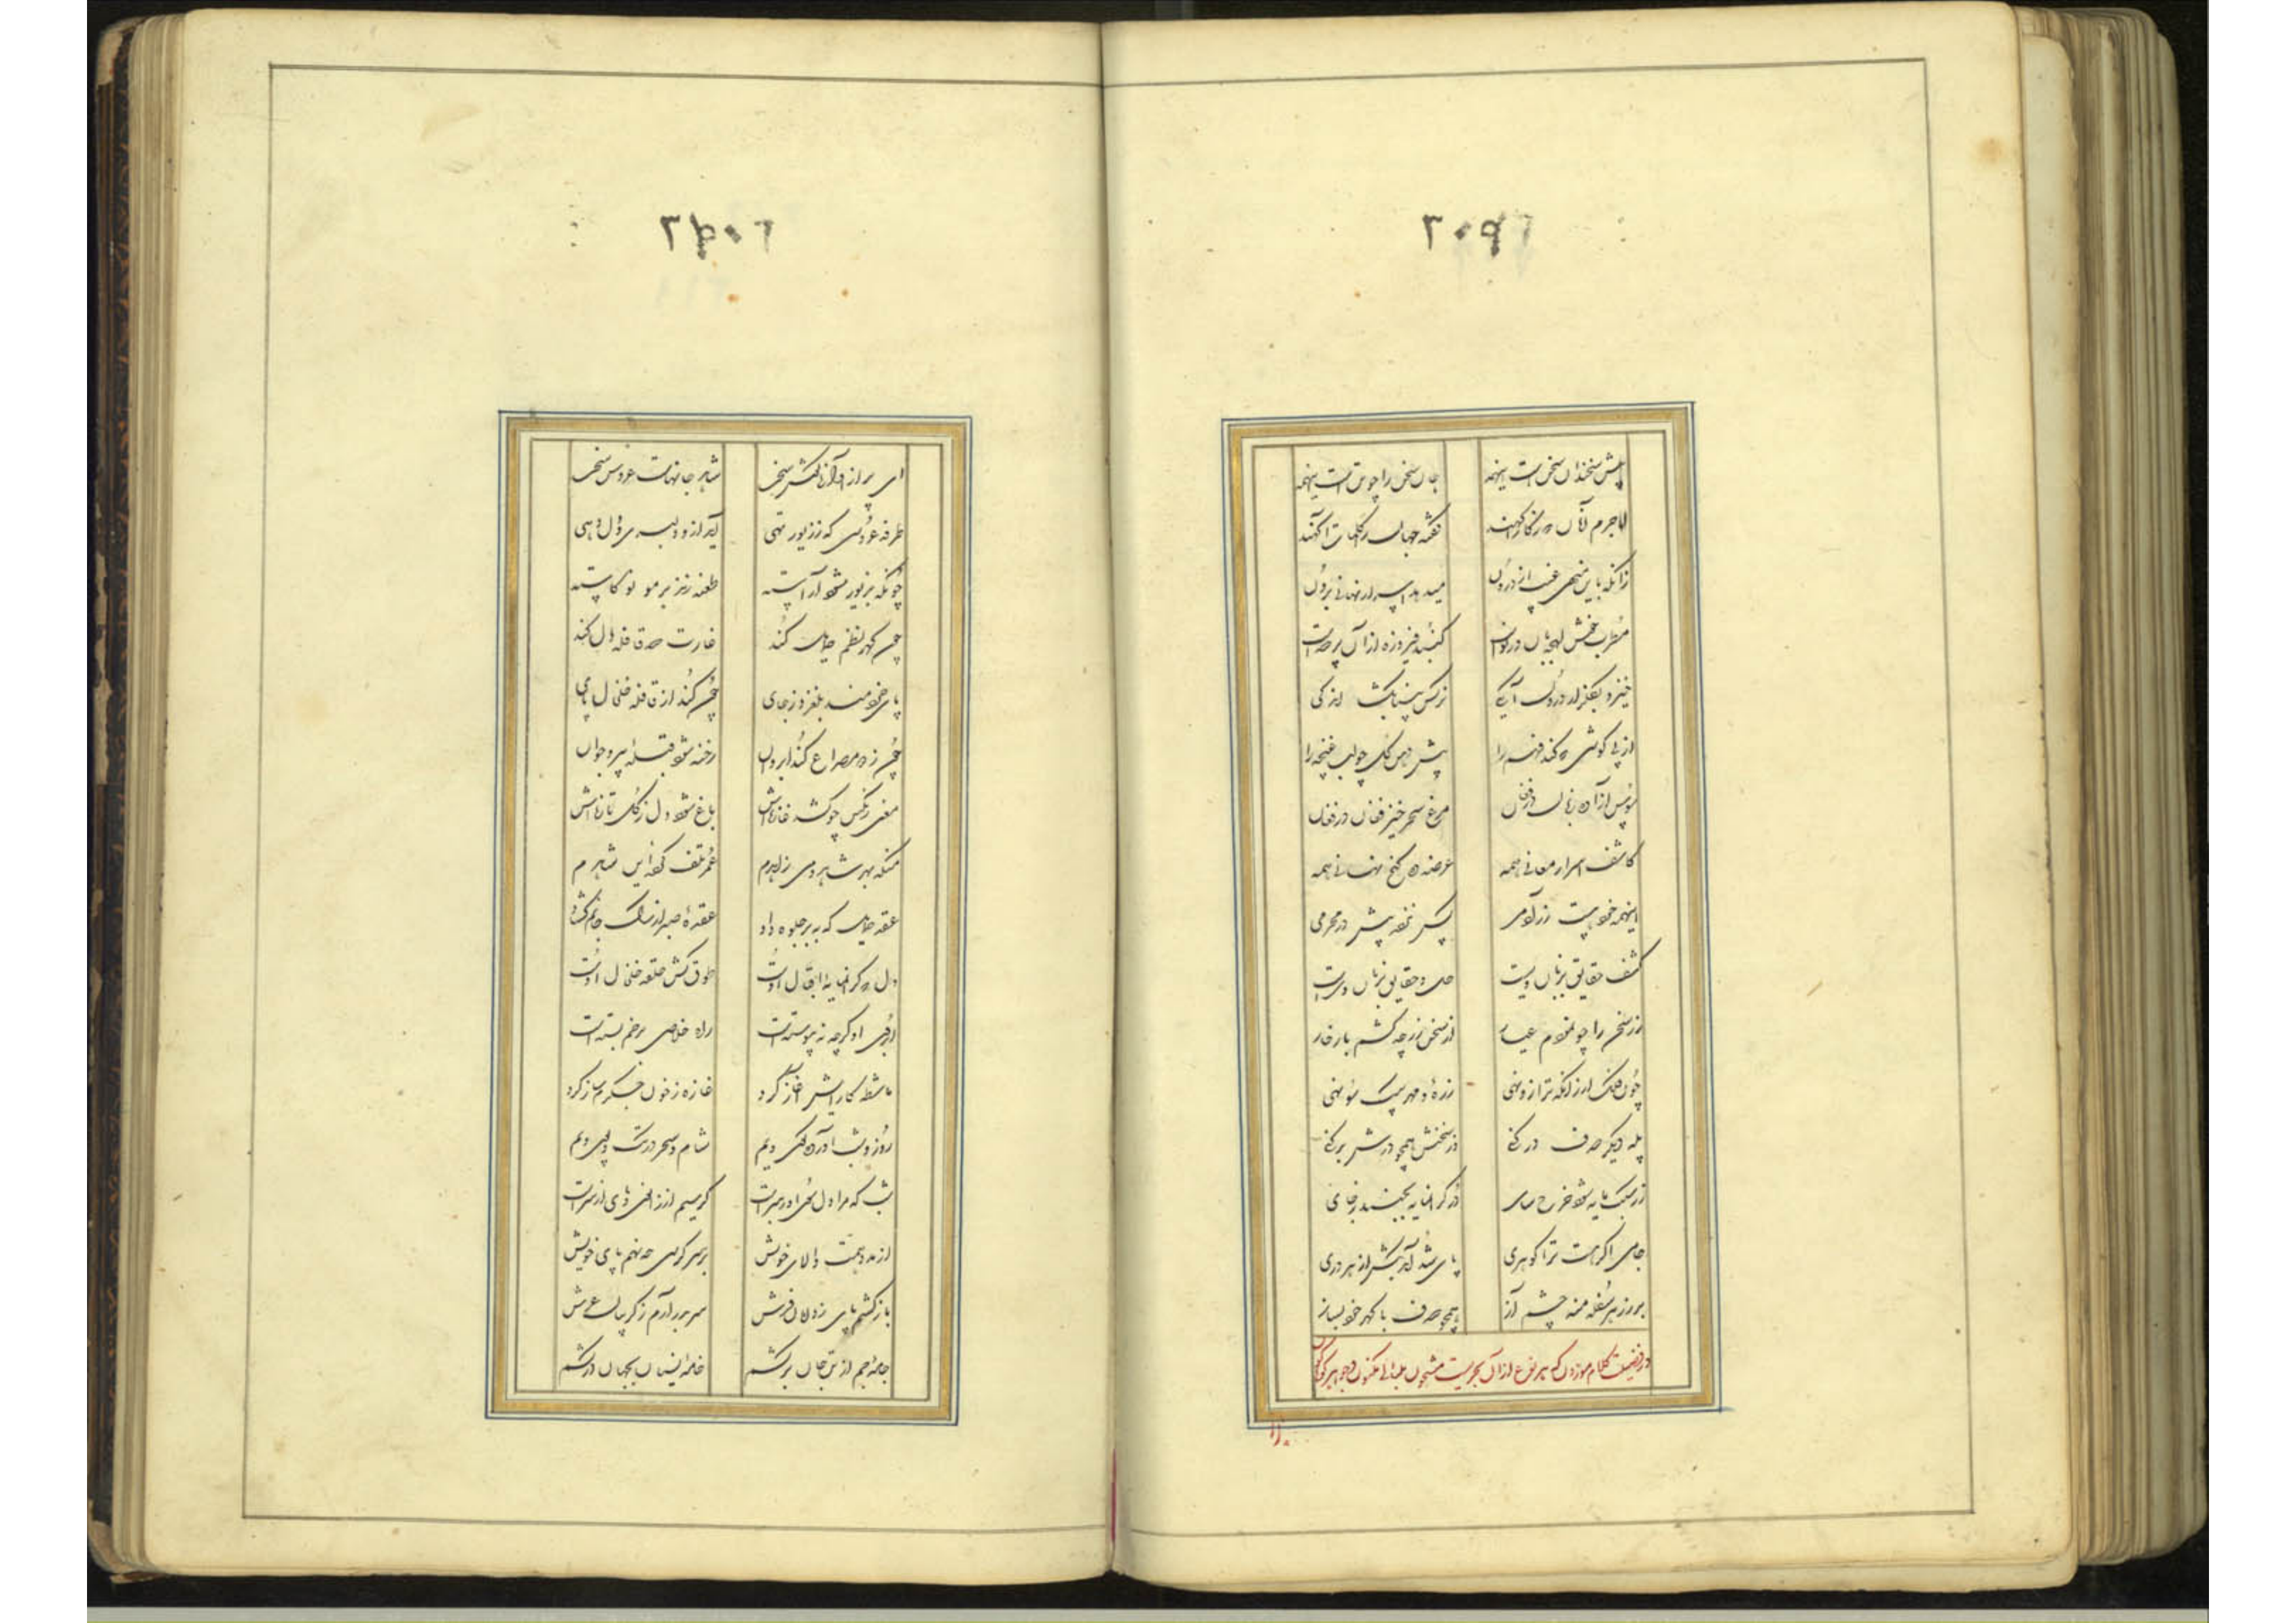 ۲۰۹۱
پیش سخندان سخن است اینهمه جان سخن را چو تن است اینهمه
لاجرم آنان که ز کار آگهند نقش جهان را کلمات
زانکه باین منهی غیب از درون میدهد اسرار نهانی برون
مطرب خوش لهجه بآن در نواست گنبد فیروزه ازان پر صداست
خیز و بگلزار درون آ یکی نرگس بینا بگشا اندکی
از پی گوشی که کند فهم را پیش دهن گل چو لب غنچه را
سوسن آزاده زبان در فشان مرغ سحر خیز فغان در فغان
کاشف اسرار معانی همه عرضه ده گنج نهانی همه
اینهمه خود هست ز در محرمی
کشف حقایق بزبان ویست حل دقایق بزبان ویست
زر سخن را چو نمودم عیار از سخن زر چه کشم بار عار
چون فلک ار زانکه ترازو نهی زر مه و مهر بیک سو نهی
پله دیگر صدف در کنی در سخنش همچو درش پر کنی
زر سبک مایه شود چرخ سای در گرانمایه نجنبد ز جای
جامی اگر هست ترا گوهری پای بکش از هر دری
بر زر هر سفله منه چشم آز همچو صدف با گهر خود بساز
در فضیلت کلام موزون که هر نوع ازان بحریست مشحون بلآلی مکنون و جواهر گوناگون
۲۰۹۲
ای پر از آوازه کشور سخن شاهد جانهاست عروس سخن
طرفه عروسی که ز زیور تهی آید ازو دلبری و دل دهی
چونکه بزیور شود آراسته طعنه زند بر مه نو کاسته
چون گهر نظم حمایل کند غارت صد قافله دل کند
پای خردمند بلغزد ز جای چون کند از قافیه خلخال پای
چون ز دو مصراع کند ابروان رخنه شود قبله پیر و جوان
معنی رنگین چو کشد غازه‌اش باغ شود دل ز گل تازه‌اش
منکه بهر شاهد و می زاهدم عمر تلف کرده این شاهدم
عقد حمایل که ببر جلوه داد عقده صبر از رگ جانم گشاد
دل که گرانمایه اقبال اوست طوق کش حلقه خلخال اوست
ابروی او گرچه نه پیوسته است راه خلاصی بر خم بسته است
ماشطه کارایش آغاز کرد غازه ز خون جگرم ساز کرد
روز و شب آواره کوی ویم شام و سحر در تک و پوی ویم
شب که مرا دل سوی او رهبرست کرسیم از زانو و پای از سرست
از مدد همت والای خویش بر سر کرسی چو نهم پای خویش
باز کشم پای ز دامان فرش سر بدر آرم ز گریبان عرش
جامه جسم از تن جان بر کشم خامه نسیان بجهان در کشم